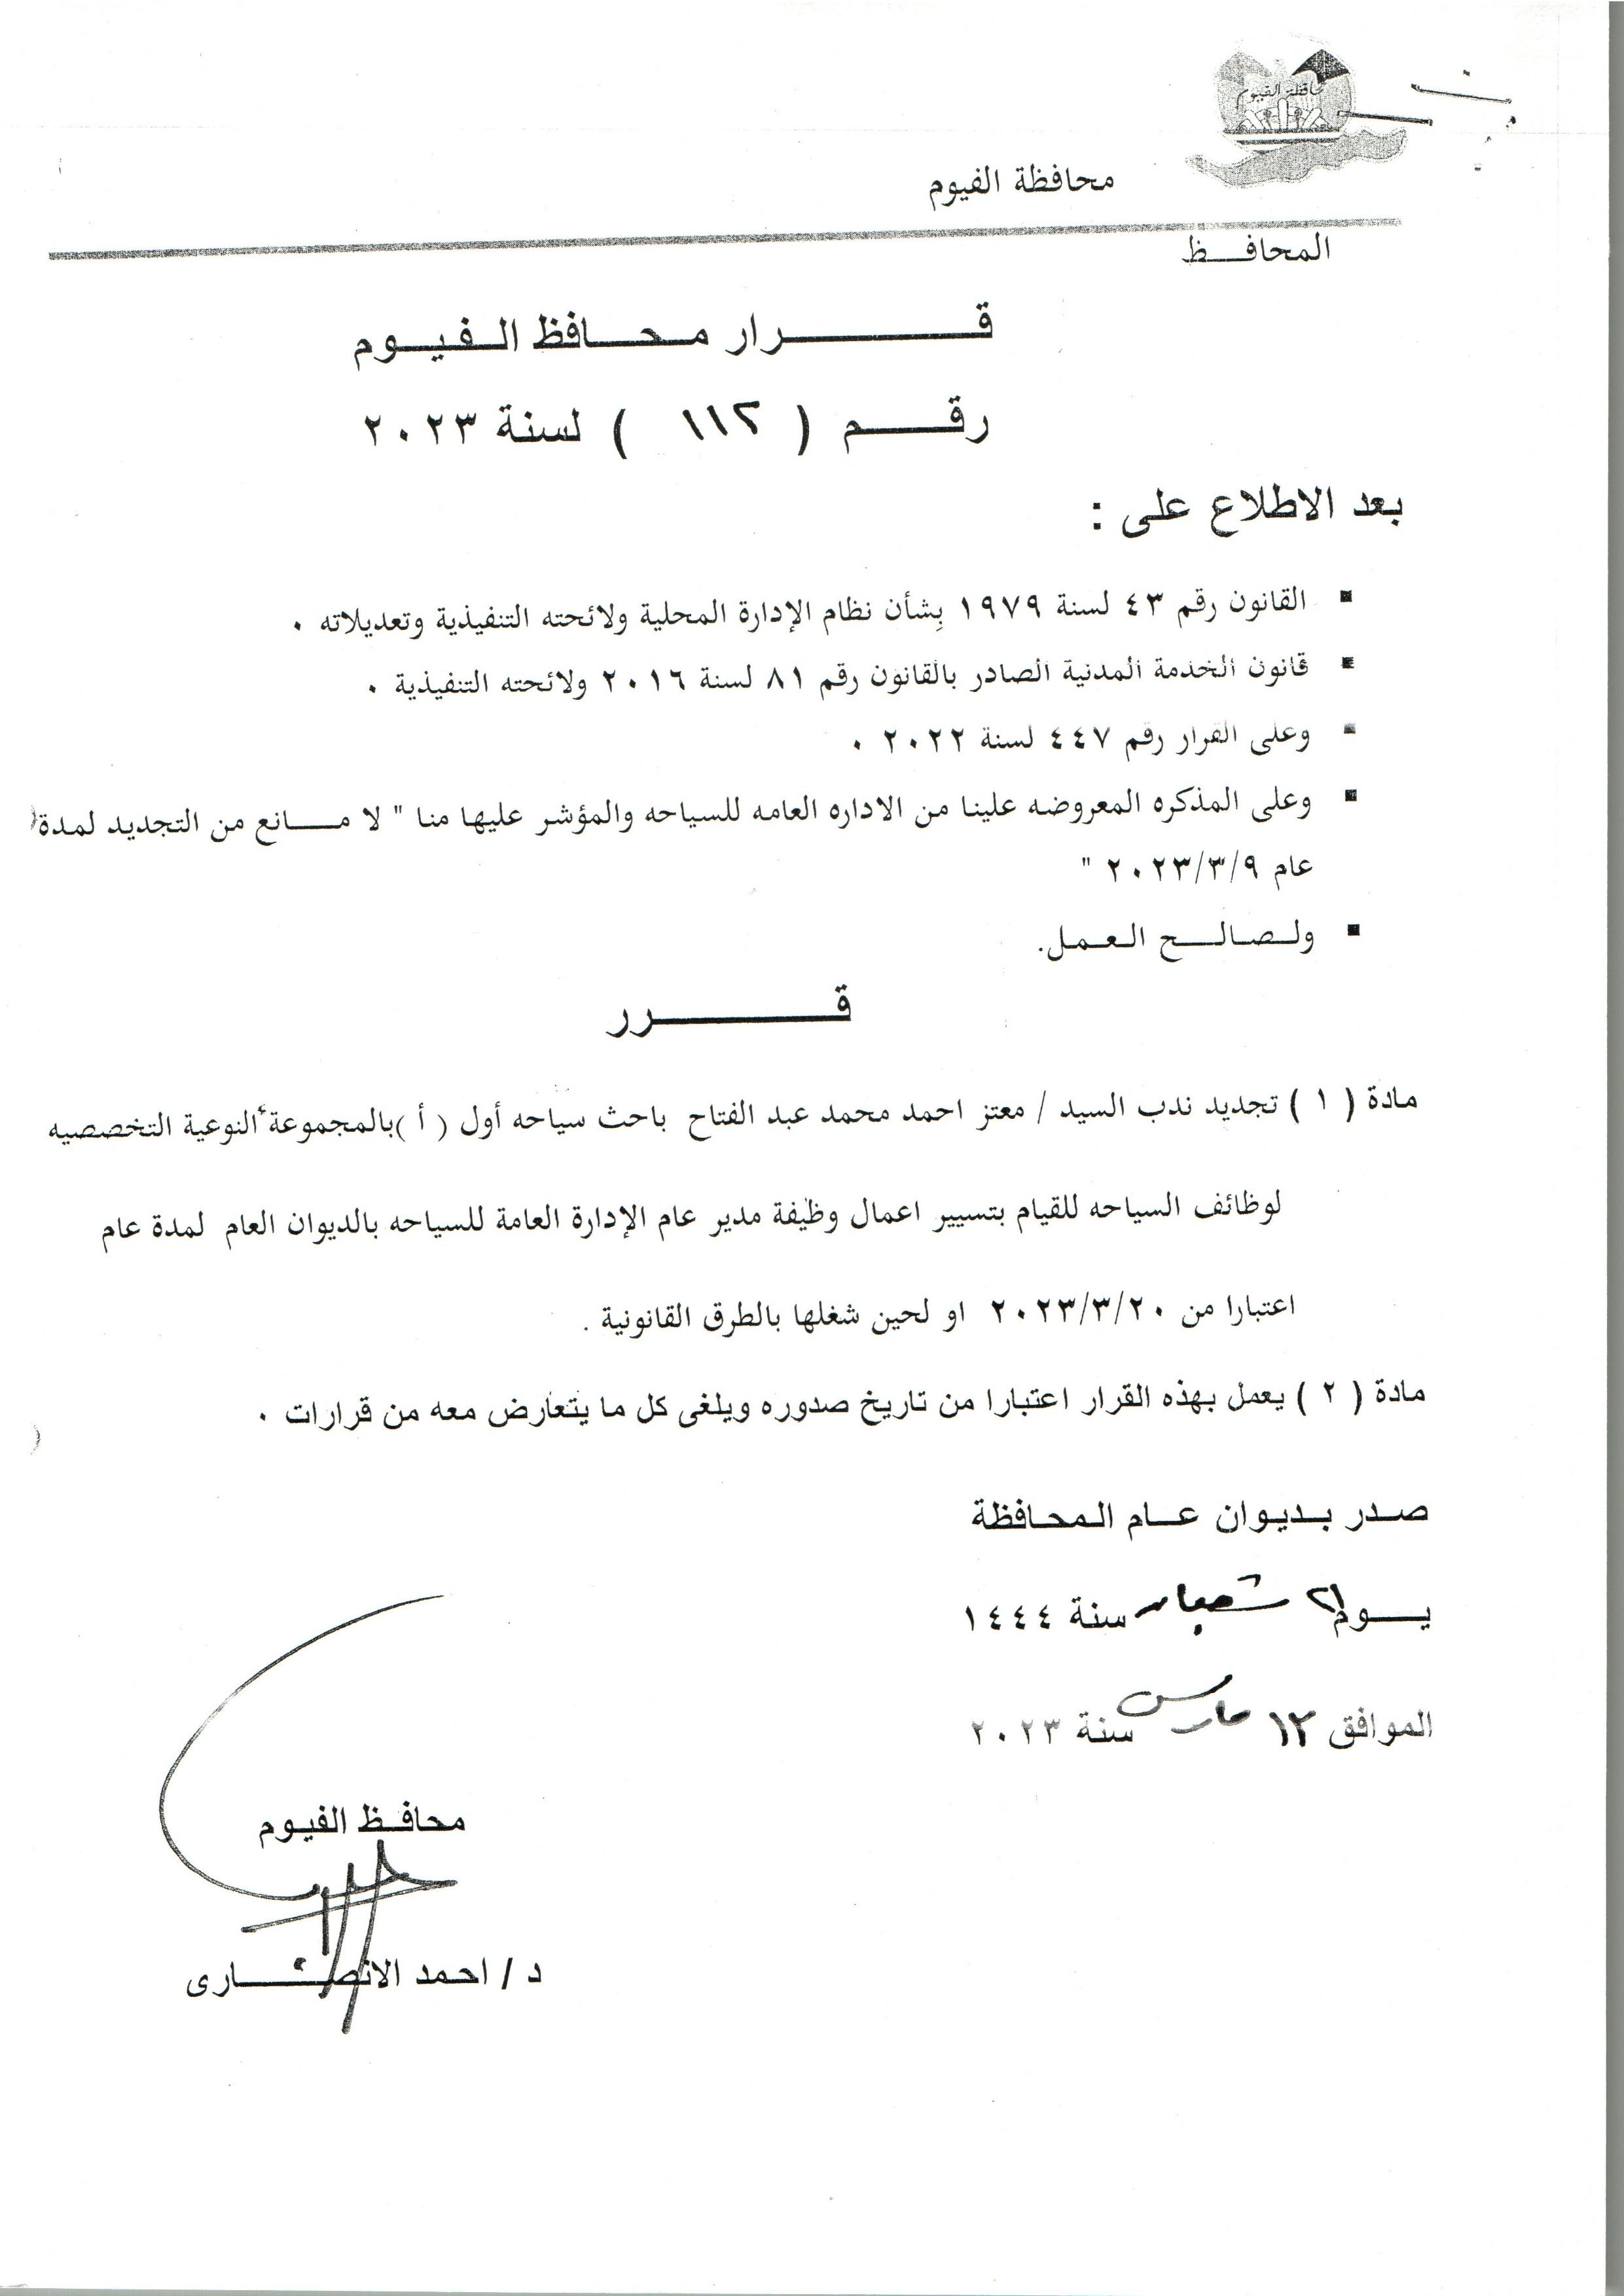 محافظة الفيوم
محافظة الفيوم
المحافـــظ
قـــــــرار محـافظ الـفـيـوم
رقـــم ( ١١٢ ) لسنة ٢٠٢٣
بعد الاطلاع على :
▪ القانون رقم ٤٣ لسنة ١٩٧٩ بِشأن نظام الإدارة المحلية ولائحته التنفيذية وتعديلاته ٠
▪ قانون الخدمة المدنية الصادر بالقانون رقم ٨١ لسنة ٢٠١٦ ولائحته التنفيذية ٠
▪ وعلى القرار رقم ٤٤٧ لسنة ٢٠٢٢ ٠
▪ وعلى المذكره المعروضه علينا من الاداره العامه للسياحه والمؤشر عليها منا " لا مـــانع من التجديد لمدة
عام ٢٠٢٣/٣/٩ "
▪ ولـصـالـــح الـعـمـل.
قـــــــرر
مادة ( ١ ) تجديد ندب السيد / معتز احمد محمد عبد الفتاح باحث سياحه أول ( أ )بالمجموعة النوعية التخصصيه
لوظائف السياحه للقيام بتسيير اعمال وظيفة مدير عام الإدارة العامة للسياحه بالديوان العام لمدة عام
اعتبارا من ٢٠٢٣/٣/٢٠ او لحين شغلها بالطرق القانونية .
مادة ( ٢ ) يعمل بهذه القرار اعتبارا من تاريخ صدوره ويلغى كل ما يتعارض معه من قرارات ٠
صـدر بـديـوان عـــام الـمحـافظة
يـــوم ٢١ شعبان سنة ١٤٤٤
الموافق ١٢ مارس سنة ٢٠٢٣
محافـظ الفيـوم
د / احمد الانصــــارى